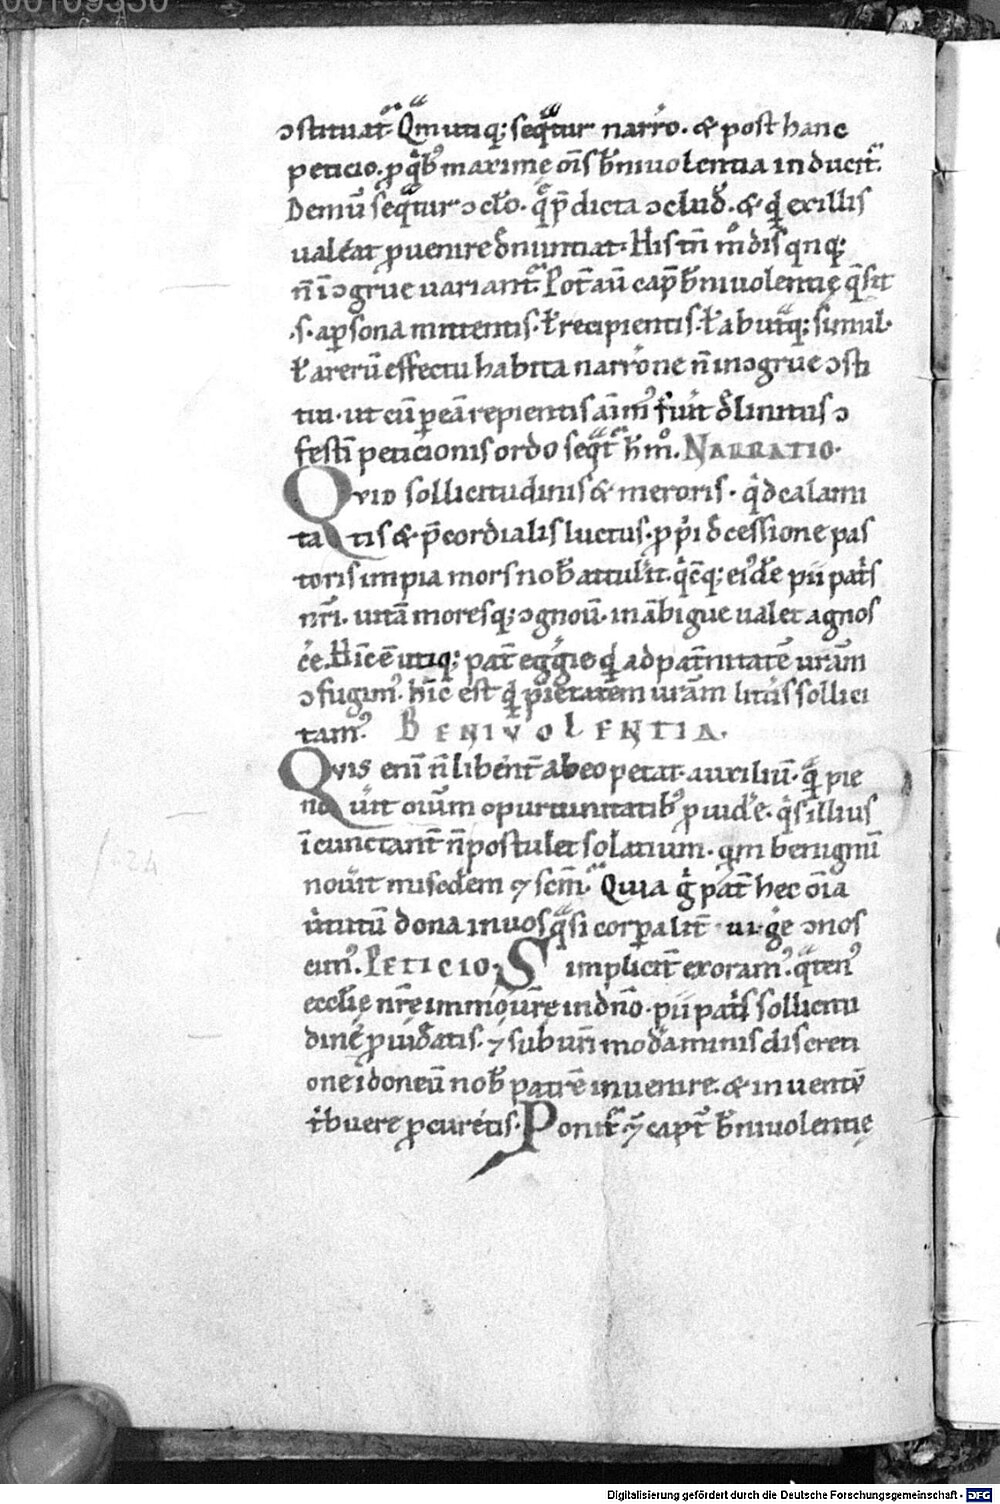 00109330
ↄstituat᷑. Qm̄ utiq; seq̄tur narr̄o. & post hanc
peticio. ꝓ q̇b᷒ maxime om̄s b̄niuolentia inducit᷑.
Demū seq̄tur ↄcło. q̄ p̄dicta ↄclud̄. & qđ ex illis
ualeat ꝓuenire d̄nuntiat. His tn̄ m̊dis qnq;
n̄ īↄgrue uariant᷑. Pot̄ aū cap̄ b̄niuolentię q̄sit
.s. a ꝑsona mittentis. ł recipientis. ł ab utq; simul.
ł a rerū effectu habita narr̄one n̄ inↄgrue ↄsti
tui. ut cū ꝑ eā repientis aīm᷒ fu͛it d̄linitus ↄ
festī peticionis ordo seq̄t᷑ h̄ m̊. NARRATIO.
Qvid sollicitudinis & meroris. q̇d calami
tatis & p̄cordialis luctus. ꝓpi d̄cessione pas
toris impia mors nob̄ attulit. q̇cq; ei᷒dē pii pat̄s
nr̄i. uitā moresq; ↄgnou͛. inābigue ualet agnos
c͛e. Hīc ē utiq; pat̄ eggie qđ ad pat̄nitatē urām
ↄfugim᷒. hīc est qđ pietatem urām litt͛is sollici
tam᷒. BENIVOLENTIA.
Qvis enī n̄ libent͛ ab eo petat auxiliū. q̄ pie
nou͛it oiūm opurtunitatib᷒ ꝓuid͛e. q̇s illius
īcunctant͛ n̄ postulet solatium. q̄m benignū
nou͛it misọdem ⁊ sc̄m. Quia g̊ pat̄ hec oīa
u͛tutū dona in uos q̄si corꝑalit͛ uig͛e ↄnos
cim᷒. PETICIO. Simplicit͛ exoram᷒. q̄ten᷒
eccłię nrę immo urę in dn̄o. pii pat̄s sollicitu
dinē ꝓuid̄atis. ⁊ sub ur̄i mod̄aminis discreti
one idoneū nob̄ patrē inuenire. & inuentū
t͛buere ꝓcuretis. Ponit᷑ ⁊ capt̄ b̄niuolentię
Digitalisierung gefördert durch die Deutsche Forschungsgemeinschaft - DFG